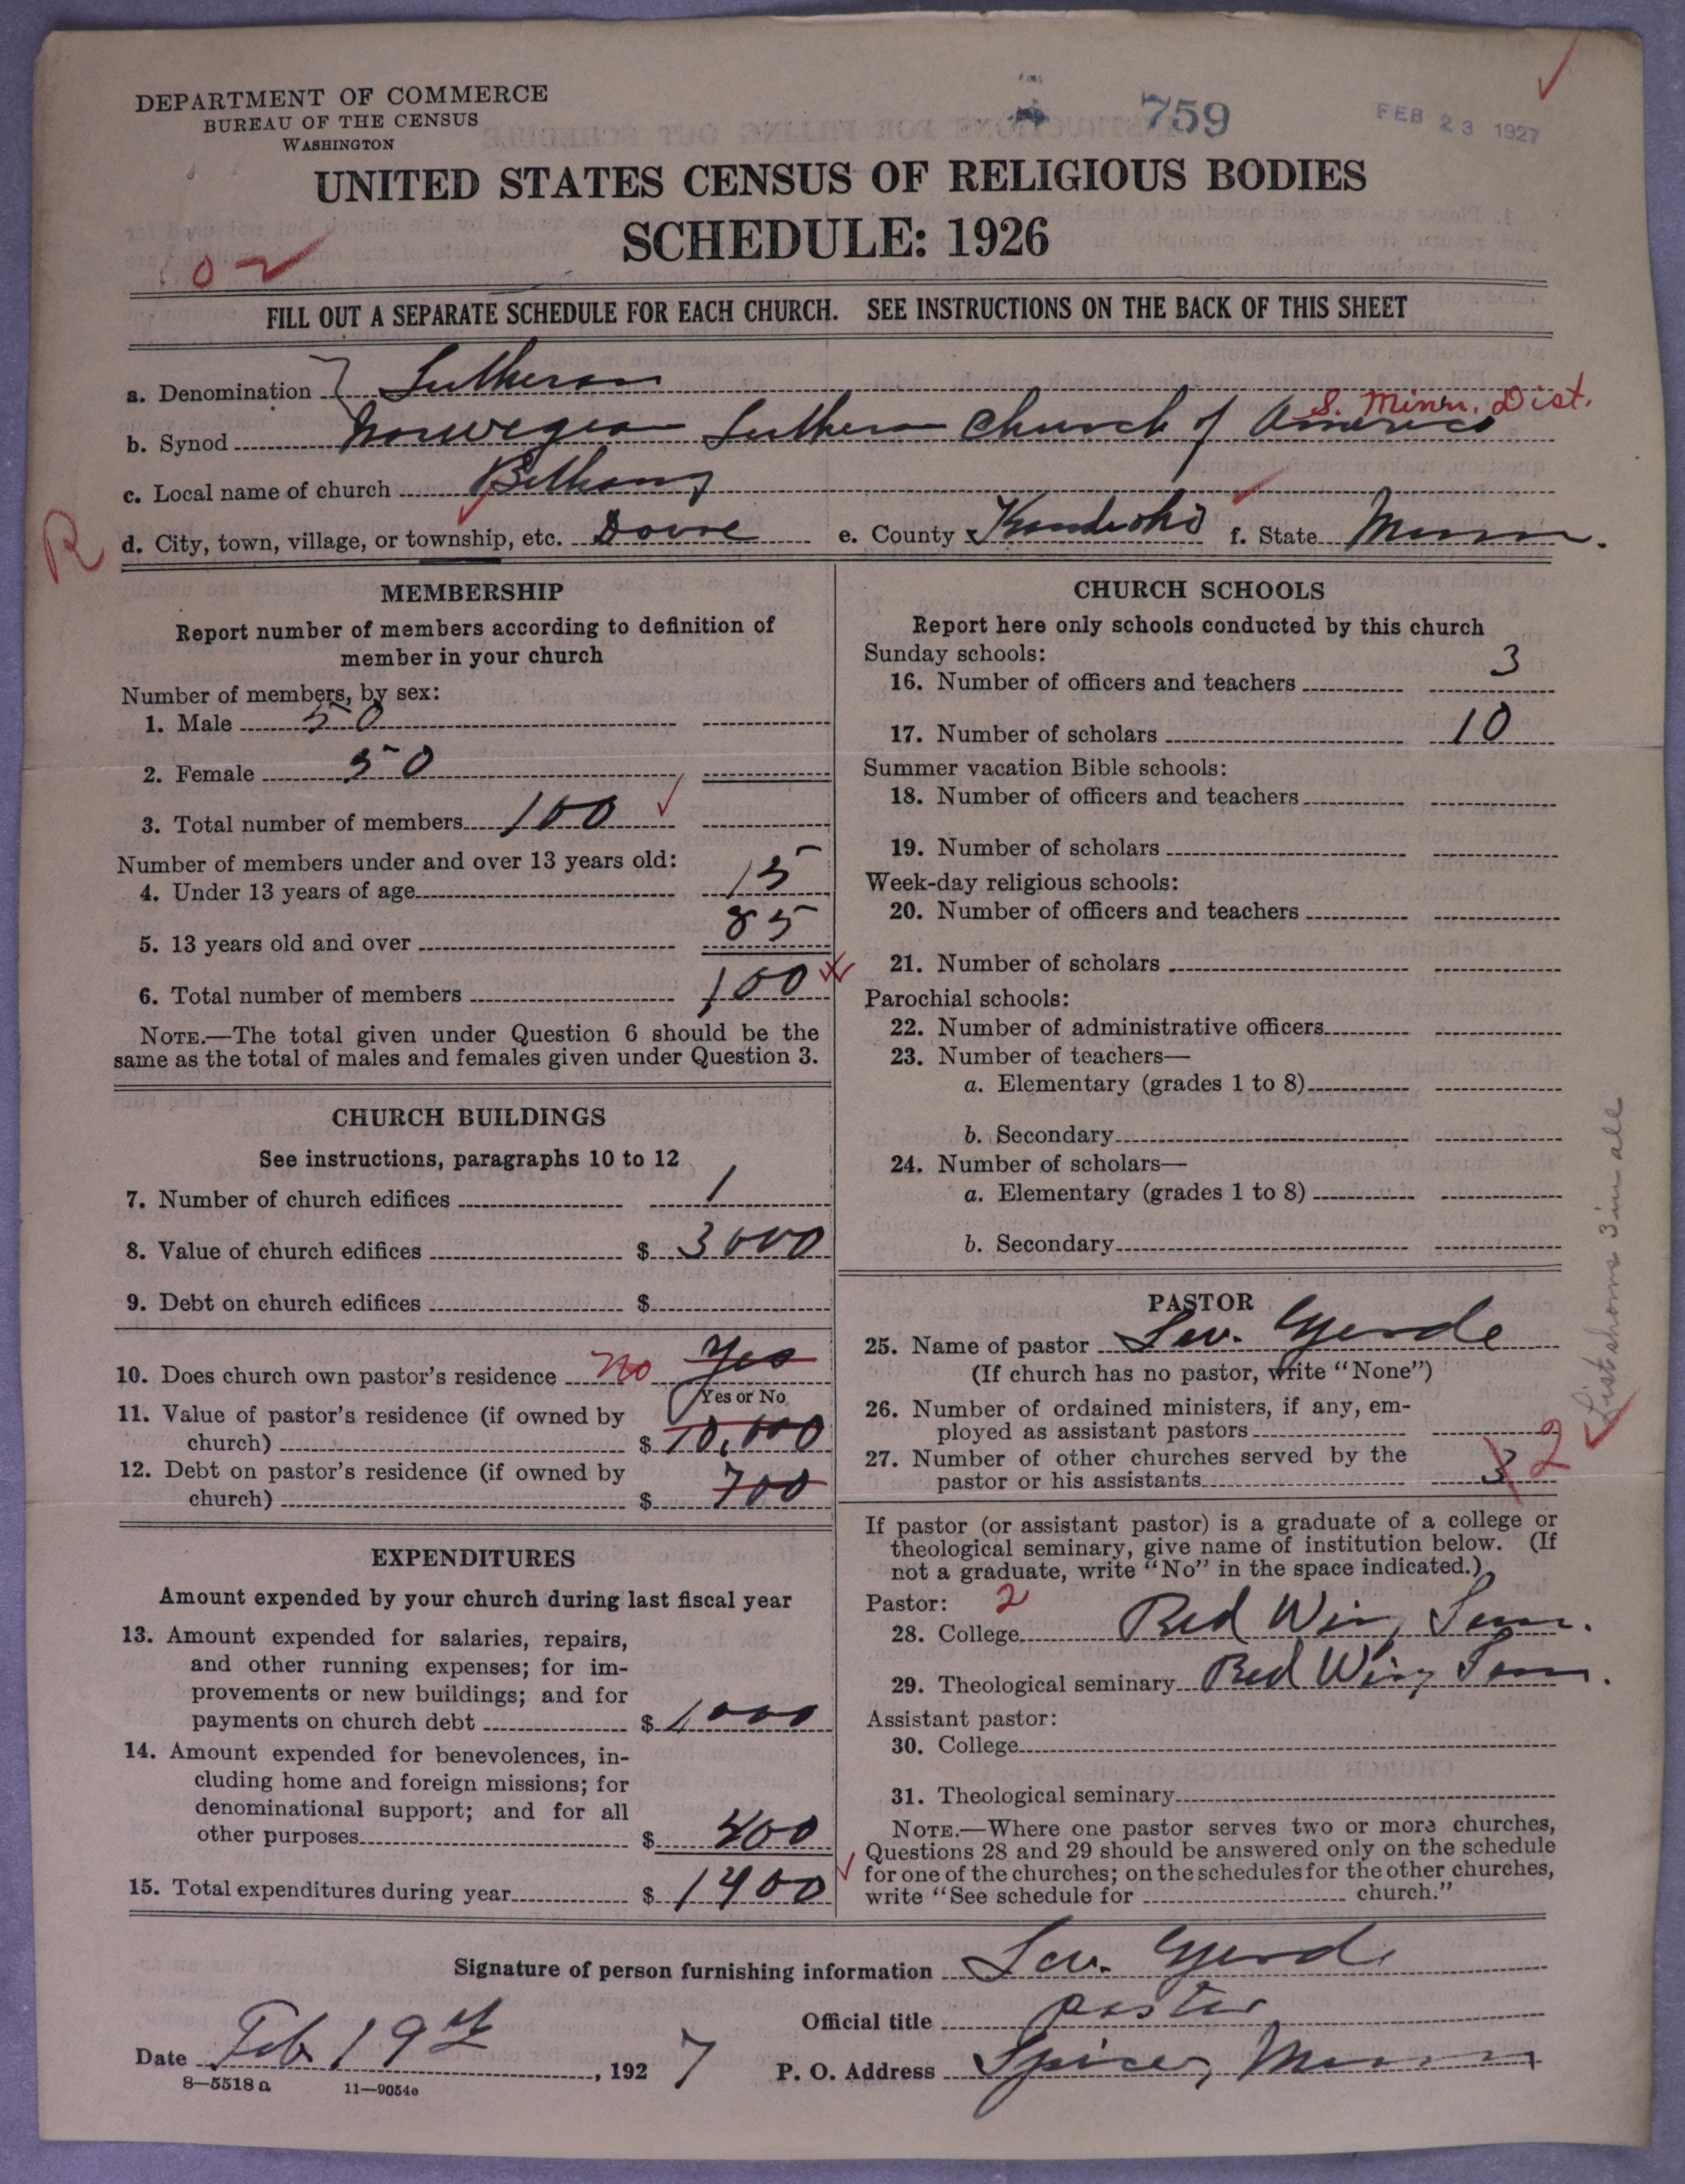 DEPARTMENT OF COMMERCE
BUREAU OF THE CENSUS
WASHINGTON
759
FEB 23 1927
UNITED STATES CENSUS OF RELIGIOUS BODIES
SCHEDULE: 1926
FILL OUT A SEPARATE SCHEDULE FOR EACH CHURCH. SEE INSTRUCTIONS ON THE BACK OF THIS SHEET
a. Denomination Lutheran
S. Minn. Dist.
b. Synod Norwegian Lutheran Church of America
c. Local name of church Bethany
R
d. City, town, village, or township, etc. Dovre e. County Kandiyohi f. State Minn.
MEMBERSHIP
Report number of members according to definition of
member in your church
Number of members, by sex:
1. Male 50
2. Female 50
3. Total number of members 100
Number of members under and over 13 years old:
4. Under 13 years of age 15
5. 13 years old and over 85
6. Total number of members 100
NOTE.—The total given under Question 6 should be the
same as the total of males and females given under Question 3.
CHURCH BUILDINGS
See instructions, paragraphs 10 to 12
7. Number of church edifices 1
8. Value of church edifices $ 3000
9. Debt on church edifices $
10. Does church own pastor's residence No Yes
(Yes or No)
11. Value of pastor's residence (if owned by
church) $ 10,000
12. Debt on pastor's residence (if owned by
church) $ 700
EXPENDITURES
Amount expended by your church during last fiscal year
13. Amount expended for salaries, repairs,
and other running expenses; for im-
provements or new buildings; and for
payments on church debt $ 1000
14. Amount expended for benevolences, in-
cluding home and foreign missions; for
denominational support; and for all
other purposes $ 400
15. Total expenditures during year $ 1400
CHURCH SCHOOLS
Report here only schools conducted by this church
Sunday schools:
16. Number of officers and teachers 3
17. Number of scholars 10
Summer vacation Bible schools:
18. Number of officers and teachers
19. Number of scholars
Week-day religious schools:
20. Number of officers and teachers
21. Number of scholars
Parochial schools:
22. Number of administrative officers
23. Number of teachers—
a. Elementary (grades 1 to 8)
b. Secondary
24. Number of scholars—
a. Elementary (grades 1 to 8)
b. Secondary
List shows 3 in all
PASTOR
25. Name of pastor Lev. Gjerde
(If church has no pastor, write "None")
26. Number of ordained ministers, if any, em-
ployed as assistant pastors
27. Number of other churches served by the
pastor or his assistants 3 2
If pastor (or assistant pastor) is a graduate of a college or
theological seminary, give name of institution below. (If
not a graduate, write "No" in the space indicated.)
Pastor: 2
28. College Red Wing Sem.
29. Theological seminary Red Wing Sem.
Assistant pastor:
30. College
31. Theological seminary
NOTE.—Where one pastor serves two or more churches,
Questions 28 and 29 should be answered only on the schedule
for one of the churches; on the schedules for the other churches,
write "See schedule for church."
Signature of person furnishing information Lev. Gjerde
Official title pastor
Date Feb 19th, 1927 P. O. Address Spicer, Minn
8—5518a 11—9054e